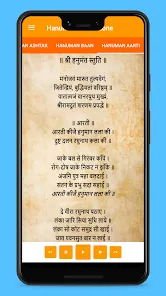 Hanuman
one
AN ASHTAK HANUMAN BAAN HANUMAN AARTI
॥ श्री हनुमंत स्तुति ॥
मनोजवं मारुत तुल्यवेगं,
जितेन्द्रियं, बुद्धिमतां वरिष्ठम् ॥
वातात्मजं वानरयुथ मुख्यं,
श्रीरामदूतं शरणम प्रपद्धे ॥
॥ आरती ॥
आरती कीजै हनुमान लला की ।
दुष्ट दलन रघुनाथ कला की ॥
जाके बल से गिरवर काँपे ।
रोग-दोष जाके निकट न झाँके ॥
अंजनि पुत्र महा बलदाई ।
संतन के प्रभु सदा सहाई ॥
दे वीरा रघुनाथ पठाए ।
लंका जारि सिया सुधि लाये ॥
लंका सो कोट समुद्र सी खाई ।
जात पवनसुत बार न लाई ॥